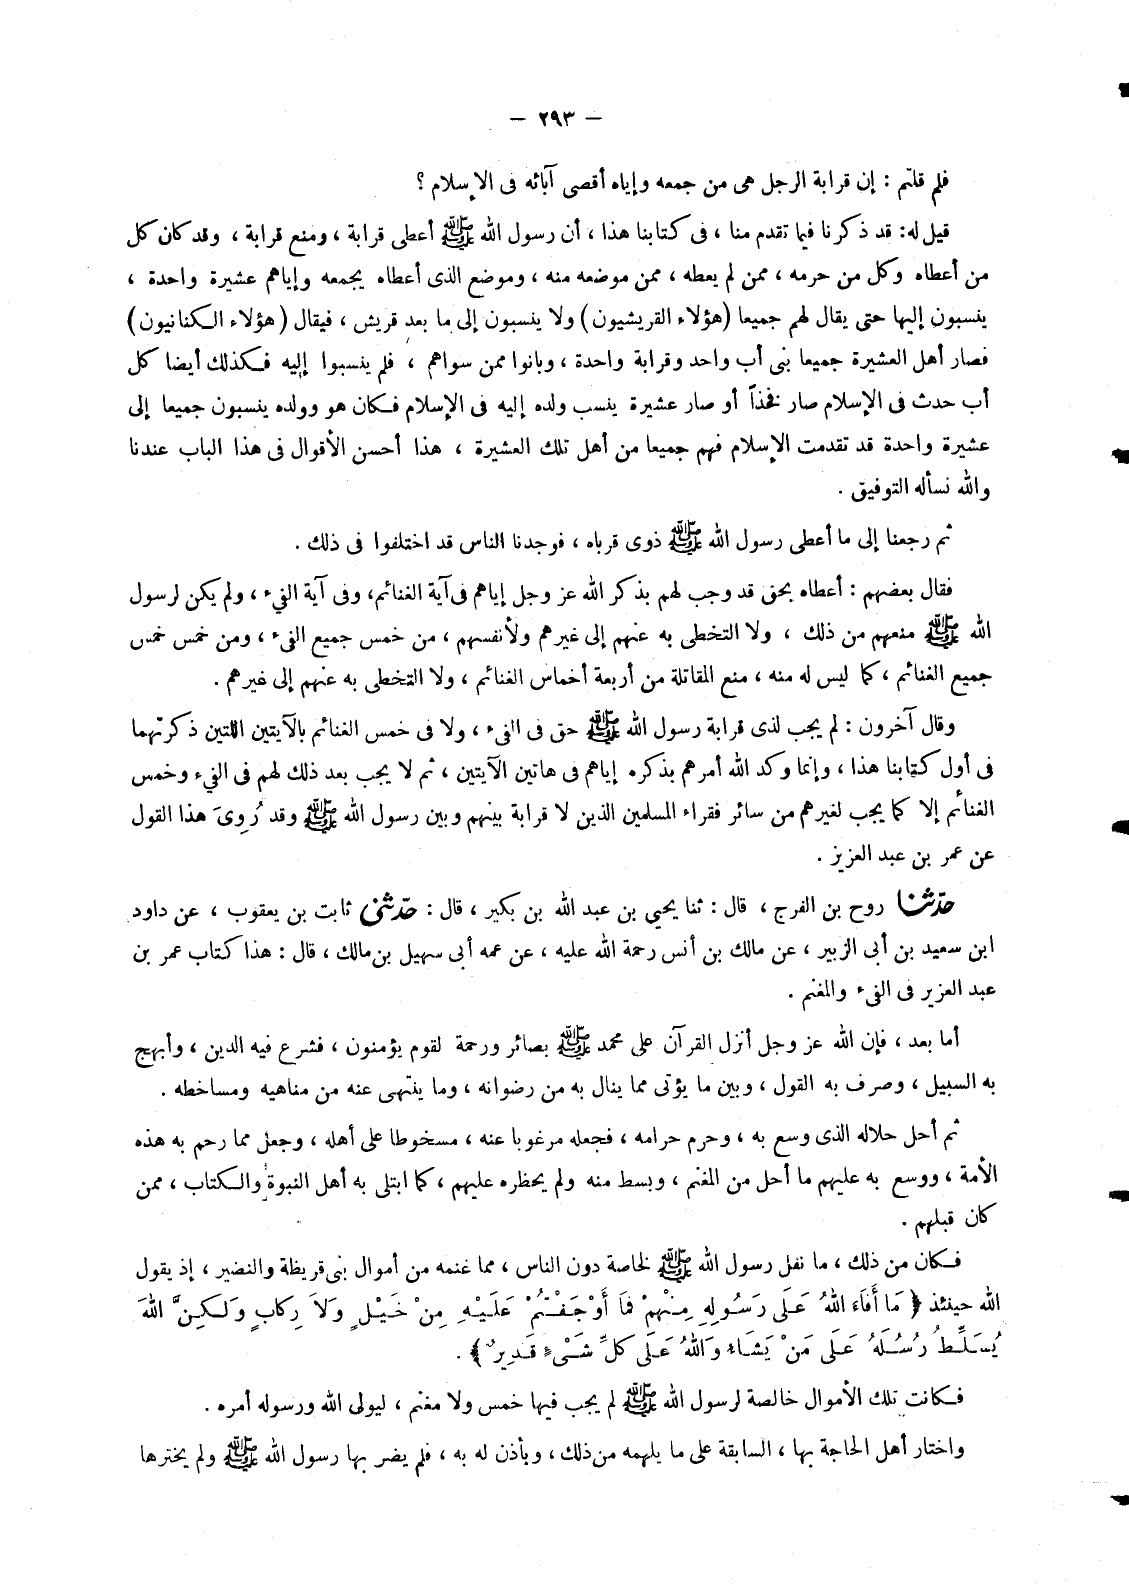 — ٢٩٣ —
فلم قلتم : إن قرابة الرجل هى من جمعه وإياه أقصى آبائه فى الإسلام ؟
قيل له: قد ذكرنا فيما تقدم منا ، فى كتابنا هذا ، أن رسول الله ﷺ أعطى قرابة ، ومنع قرابة ، وقد كان كل
من أعطاه وكل من حرمه ، ممن لم يعطه ، ممن موضعه منه ، وموضع الذى أعطاه يجمعه وإياهم عشيرة واحدة ،
ينسبون إليها حتى يقال لهم جميعا (هؤلاء القريشيون) ولا ينسبون إلى ما بعد قريش ، فيقال (هؤلاء الكنانيون)
فصار أهل العشيرة جميعا بنى أب واحد وقرابة واحدة ، وبانوا ممن سواهم ، فلم ينسبوا إليه فكذلك أيضا كل
أب حدث فى الإسلام صار فخذاً أو صار عشيرة ينسب ولده إليه فى الإسلام فكان هو وولده ينسبون جميعا إلى
عشيرة واحدة قد تقدمت الإسلام فهم جميعا من أهل تلك العشيرة ، هذا أحسن الأقوال فى هذا الباب عندنا
والله نسأله التوفيق .
ثم رجعنا إلى ما أعطى رسول الله ﷺ ذوى قرباه ، فوجدنا الناس قد اختلفوا فى ذلك .
فقال بعضهم : أعطاه بحق قد وجب لهم بذكر الله عز وجل إياهم فى آية الغنائم، وفى آية الفىء ، ولم يكن لرسول
الله ﷺ منعهم من ذلك ، ولا التخطى به عنهم إلى غيرهم ولأنفسهم ، من خمس جميع الفىء ، ومن خمس خمس
جميع الغنائم ، كما ليس له منه ، منع المقاتلة من أربعة أخماس الغنائم ، ولا التخطى به عنهم إلى غيرهم .
وقال آخرون : لم يجب لذى قرابة رسول الله ﷺ حق فى الفىء ، ولا فى خمس الغنائم بالآيتين اللتين ذكرتهما
فى أول كتابنا هذا ، وإنما وكد الله أمرهم بذكره إياهم فى هاتين الآيتين ، ثم لا يجب بعد ذلك لهم فى الفىء وخمس
الغنائم إلا كما يجب لغيرهم من سائر فقراء المسلمين الذين لا قرابة بينهم وبين رسول الله ﷺ وقد رُوِىَ هذا القول
عن عمر بن عبد العزيز .
حدّثنا روح بن الفرج ، قال : ثنا يحيى بن عبد الله بن بكير ، قال : حدّثنى ثابت بن يعقوب ، عن داود
ابن سعيد بن أبى الزبير ، عن مالك بن أنس رحمة الله عليه ، عن عمه أبى سهيل بن مالك ، قال : هذا كتاب عمر بن
عبد العزيز فى الفىء والمغنم .
أما بعد ، فإن الله عز وجل أنزل القرآن على محمد ﷺ بصائر ورحمة لقوم يؤمنون ، فشرع فيه الدين ، وأبهج
به السبيل ، وصرف به القول ، وبين ما يؤتى مما ينال به من رضوانه ، وما ينتهى عنه من مناهيه ومساخطه .
ثم أحل حلاله الذى وسع به ، وحرم حرامه ، فجعله مرغوبا عنه ، مسخوطا على أهله ، وجعل مما رحم به هذه
الأمة ، ووسع به عليهم ما أحل من المغنم ، وبسط منه ولم يحظره عليهم ، كما ابتلى به أهل النبوة والكتاب ، ممن
كان قبلهم .
فكان من ذلك ، ما نفل رسول الله ﷺ لخاصة دون الناس ، مما غنمه من أموال بنى قريظة والنضير ، إذ يقول
الله حينئذ ﴿ مَا أَفَاءَ اللهُ عَلَى رَسُولِهِ مِنْهُمْ فَمَا أَوْجَفْتُمْ عَلَيْهِ مِنْ خَيْلٍ وَلاَ رِكابٍ وَلَكِنَّ اللهَ
يُسَلِّطُ رُسُلَهُ عَلَى مَنْ يَشَاءُ وَاللهُ عَلَى كلِّ شَىْءٍ قَدِيرٌ ﴾ .
فكانت تلك الأموال خالصة لرسول الله ﷺ لم يجب فيها خمس ولا مغنم ، ليولى الله ورسوله أمره .
واختار أهل الحاجة بها ، السابقة على ما يلهمه من ذلك ، وبأذن له به ، فلم يضر بها رسول الله ﷺ ولم يخترها